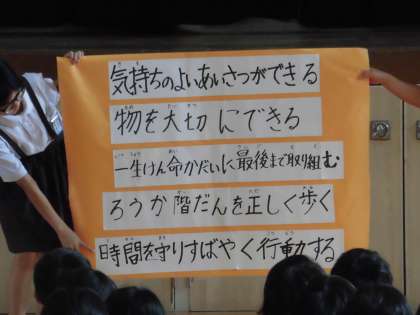 気持ちのよいあいさつができる
物を大切にできる
一生けん命かだいに最後まで取り組む
ろうか階だんを正しく歩く
時間を守りすばやく行動する